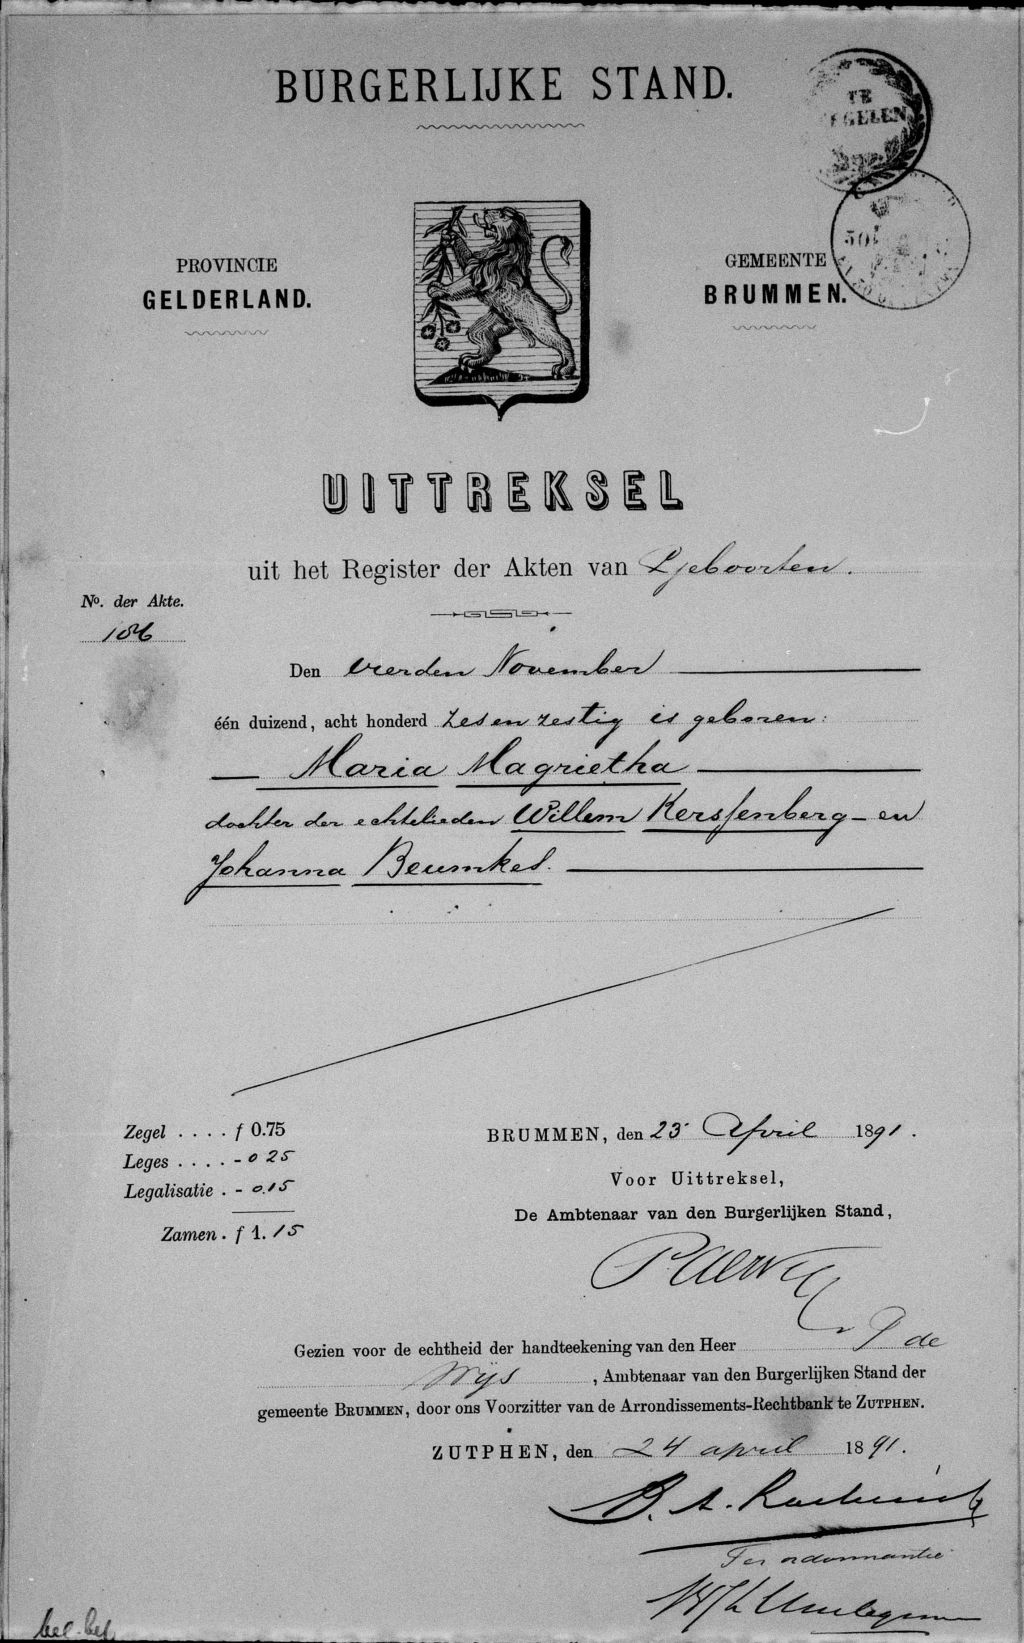 BURGERLIJKE STAND.
TE
ZEGELEN
PROVINCIE
GELDERLAND.
GEMEENTE
BRUMMEN.
50
UITTREKSEL
uit het Register der Akten van Geboorten.
No. der Akte.
186
Den vierden November
één duizend, acht honderd zes en zestig is geboren:
Maria Magrietha
dochter der echtelieden Willem Kerssenberg en
Johanna Beumkes.
Zegel . . . . f 0.75
Leges . . . . - 0 25
Legalisatie . - 0.15
Zamen . f 1.15
BRUMMEN, den 23 April 1891.
Voor Uittreksel,
De Ambtenaar van den Burgerlijken Stand,
Gezien voor de echtheid der handteekening van den Heer P de
Wijs, Ambtenaar van den Burgerlijken Stand der
gemeente BRUMMEN, door ons Voorzitter van de Arrondissements-Rechtbank te ZUTPHEN.
ZUTPHEN, den 24 april 1891.
B. A.
Ter ordonnantie